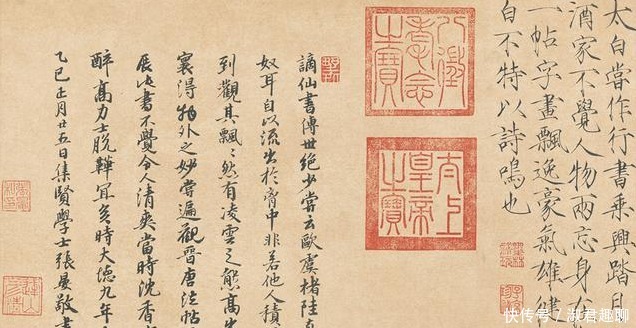 太白嘗作行書乘興踏月
酒家不覺人物兩忘身在
一帖字畫飄逸豪氣雄健
白不特以詩鳴也
八徵耄念之寶
太上皇帝之寶
謫仙書傳世絕少嘗云歐虞褚陸真
奴耳自以流出於胷中非若他人積
到觀其飄〻然有凌雲之態高出
寰得物外之妙嘗遍觀晉唐法帖
展此書不覺令人清爽當時沈香
醉高力士脫鞾宜矣時大德九年
乙巳正月廿五日集賢學士張晏敬書
快传号/淑君趣聊